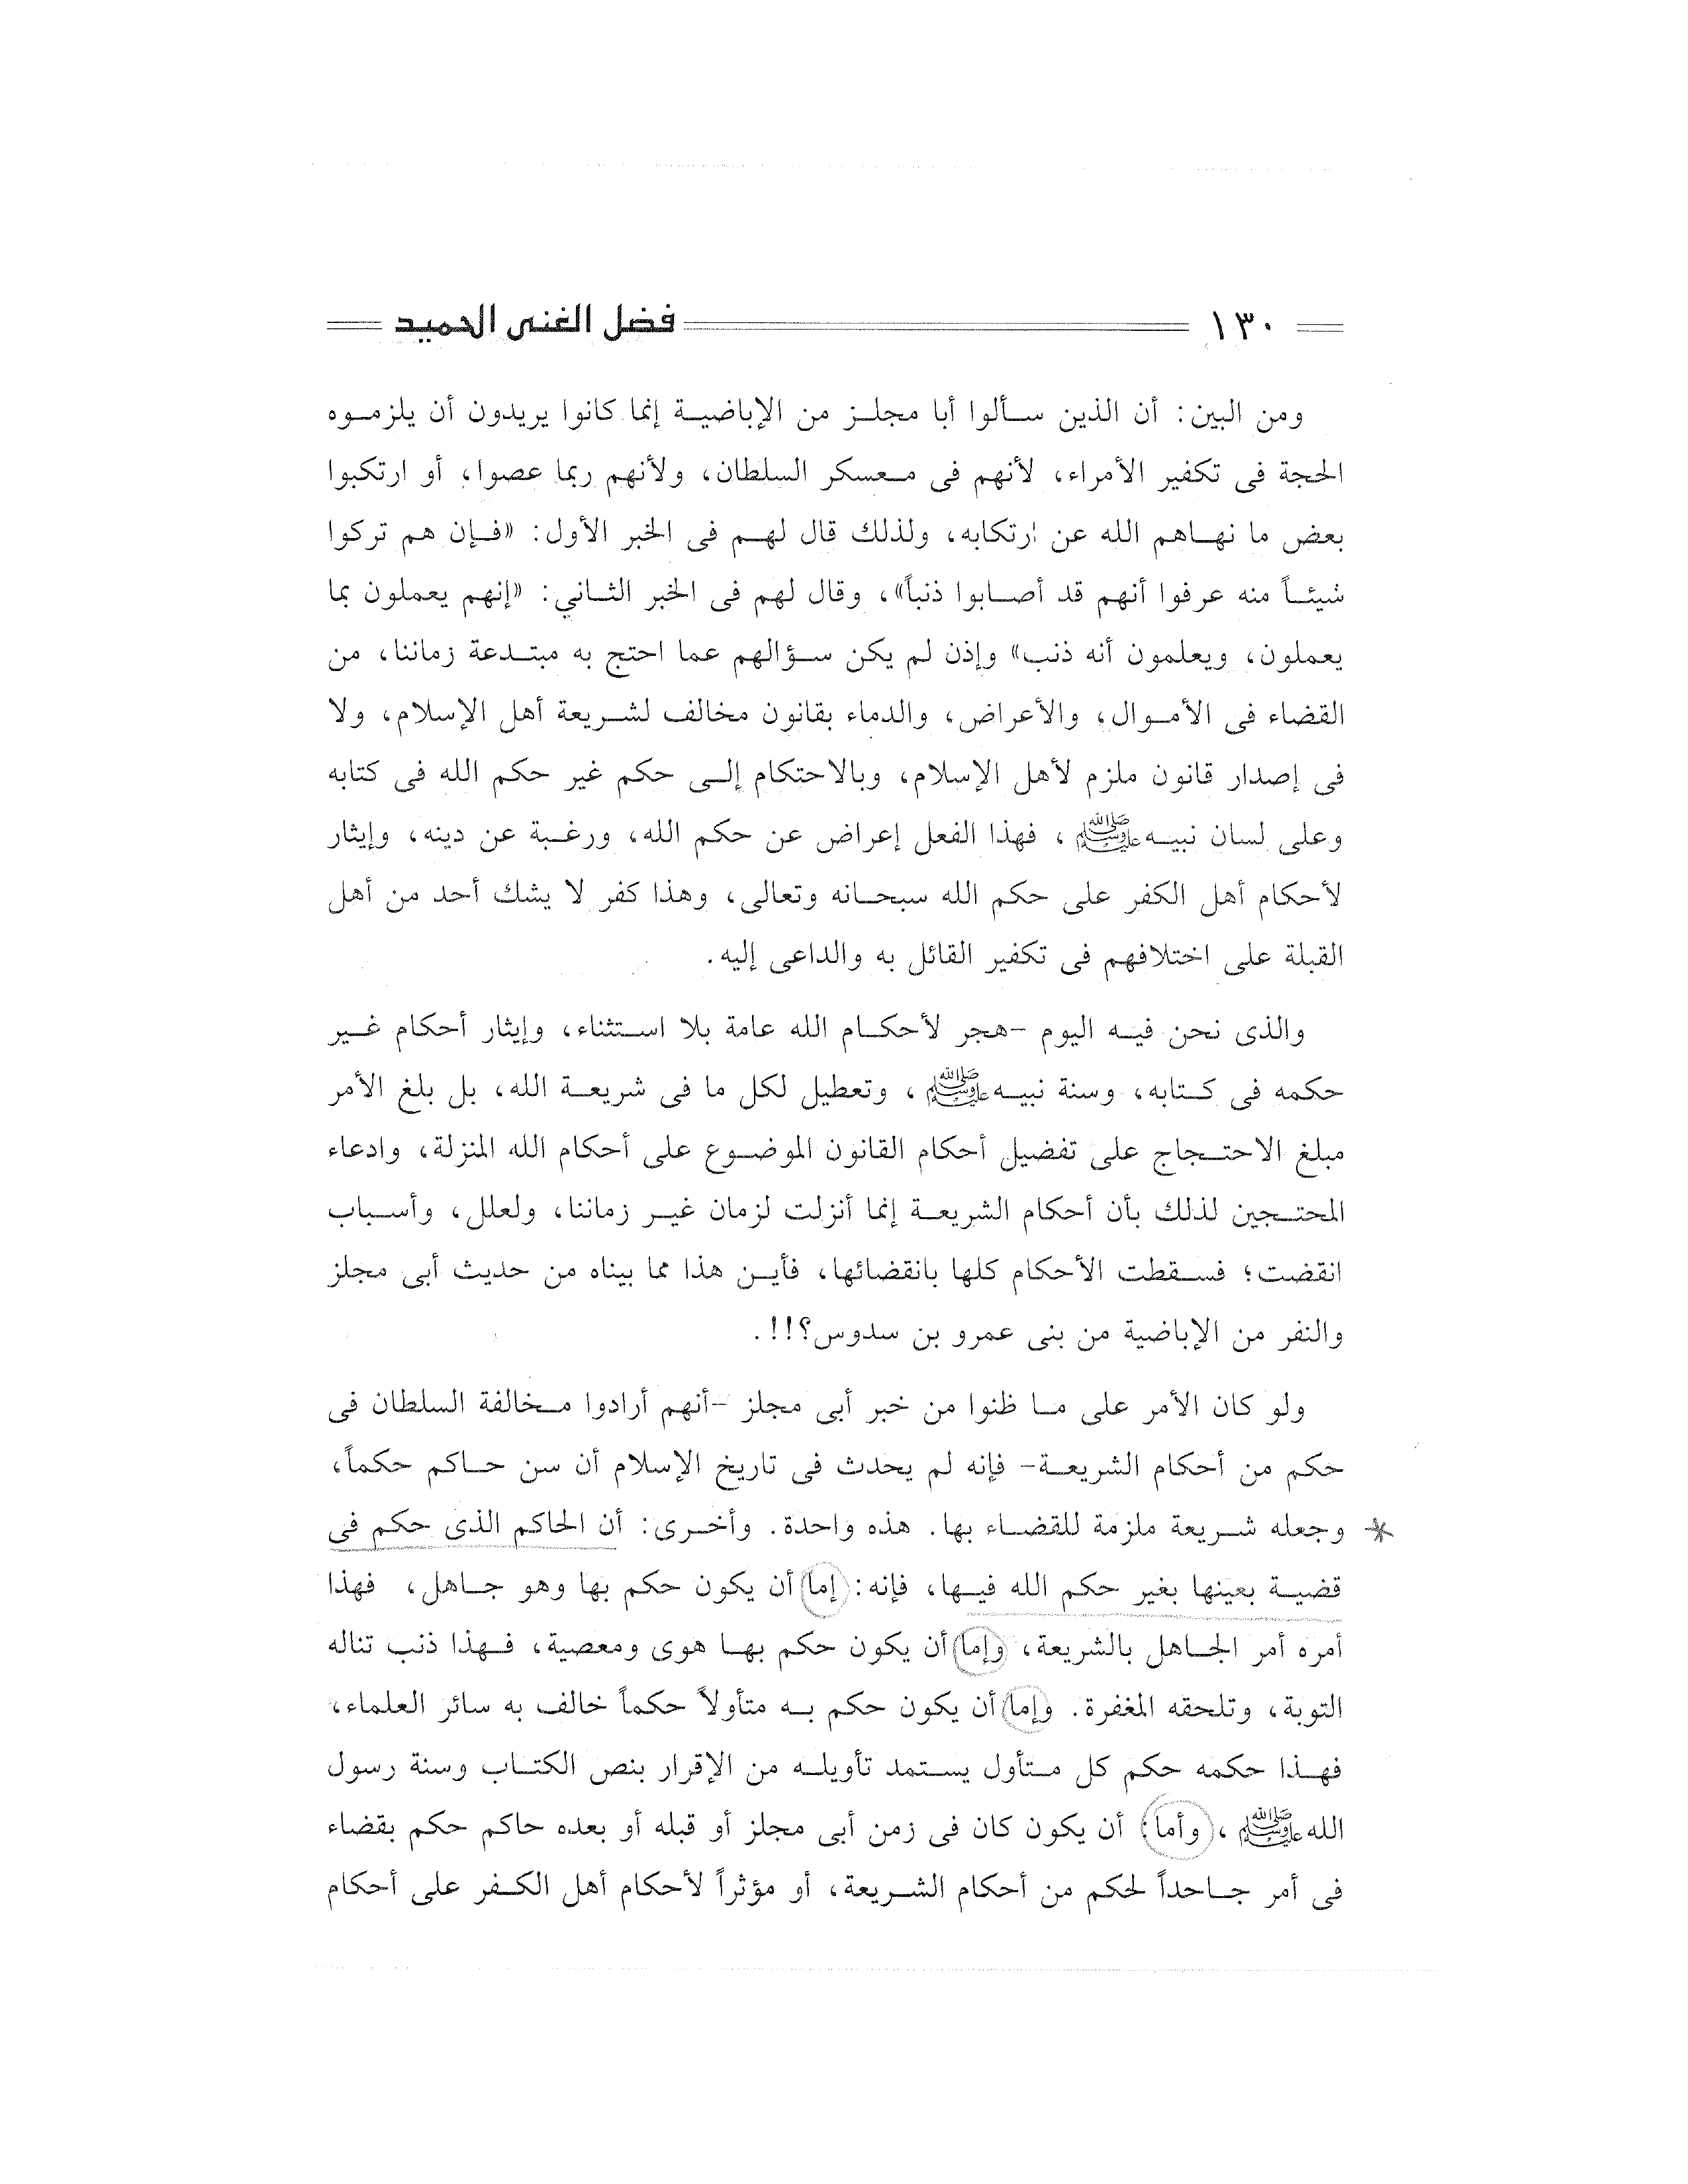 ١٣٠ فضل الغنى الحميد
ومن البين: أن الذين سألوا أبا مجلز من الإباضية إنما كانوا يريدون أن يلزموه
الحجة فى تكفير الأمراء، لأنهم فى معسكر السلطان، ولأنهم ربما عصوا، أو ارتكبوا
بعض ما نهاهم الله عن ارتكابه، ولذلك قال لهم فى الخبر الأول: «فإن هم تركوا
شيئاً منه عرفوا أنهم قد أصابوا ذنباً»، وقال لهم فى الخبر الثاني: «إنهم يعملون بما
يعملون، ويعلمون أنه ذنب» وإذن لم يكن سؤالهم عما احتج به مبتدعة زماننا، من
القضاء فى الأموال، والأعراض، والدماء بقانون مخالف لشريعة أهل الإسلام، ولا
فى إصدار قانون ملزم لأهل الإسلام، وبالاحتكام إلى حكم غير حكم الله فى كتابه
وعلى لسان نبيه ﷺ، فهذا الفعل إعراض عن حكم الله، ورغبة عن دينه، وإيثار
لأحكام أهل الكفر على حكم الله سبحانه وتعالى، وهذا كفر لا يشك أحد من أهل
القبلة على اختلافهم فى تكفير القائل به والداعى إليه.
والذى نحن فيه اليوم -هجر لأحكام الله عامة بلا استثناء، وإيثار أحكام غير
حكمه فى كتابه، وسنة نبيه ﷺ، وتعطيل لكل ما فى شريعة الله، بل بلغ الأمر
مبلغ الاحتجاج على تفضيل أحكام القانون الموضوع على أحكام الله المنزلة، وادعاء
المحتجين لذلك بأن أحكام الشريعة إنما أنزلت لزمان غير زماننا، ولعلل، وأسباب
انقضت؛ فسقطت الأحكام كلها بانقضائها، فأين هذا مما بيناه من حديث أبى مجلز
والنفر من الإباضية من بنى عمرو بن سدوس؟!!.
ولو كان الأمر على ما ظنوا من خبر أبى مجلز -أنهم أرادوا مخالفة السلطان فى
حكم من أحكام الشريعة- فإنه لم يحدث فى تاريخ الإسلام أن سن حاكم حكماً،
* وجعله شريعة ملزمة للقضاء بها. هذه واحدة. وأخرى: أن الحاكم الذى حكم فى
قضية بعينها بغير حكم الله فيها، فإنه: إما أن يكون حكم بها وهو جاهل، فهذا
أمره أمر الجاهل بالشريعة، وإما أن يكون حكم بها هوى ومعصية، فهذا ذنب تناله
التوبة، وتلحقه المغفرة. وإما أن يكون حكم به متأولاً حكماً خالف به سائر العلماء،
فهذا حكمه حكم كل متأول يستمد تأويله من الإقرار بنص الكتاب وسنة رسول
الله ﷺ، وأما: أن يكون كان فى زمن أبى مجلز أو قبله أو بعده حاكم حكم بقضاء
فى أمر جاحداً لحكم من أحكام الشريعة، أو مؤثراً لأحكام أهل الكفر على أحكام